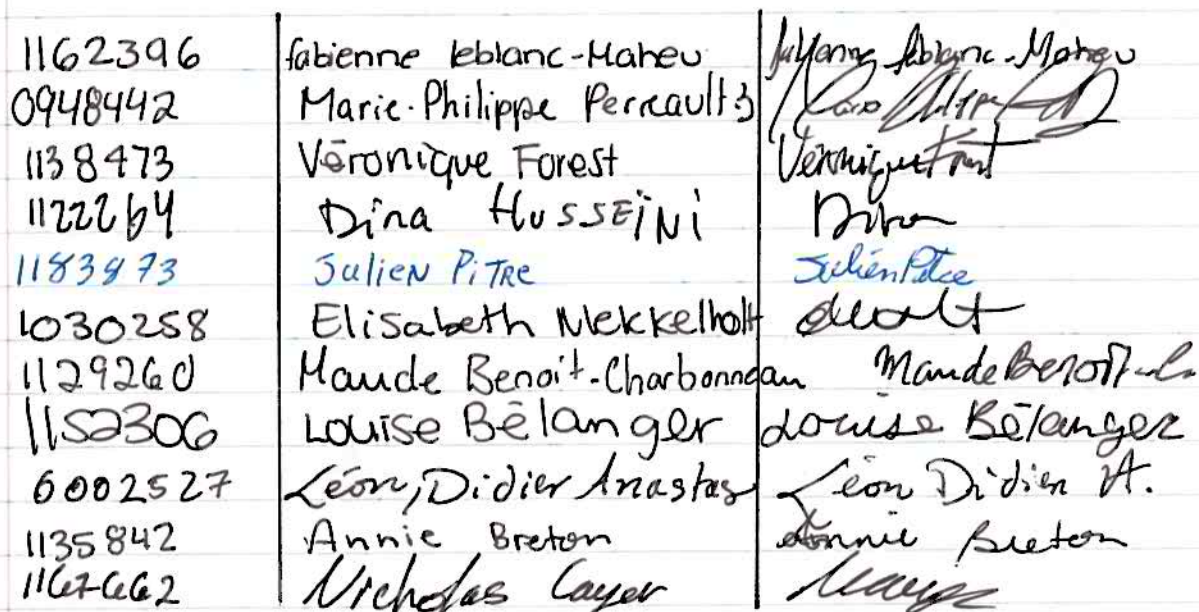 1162396 fabienne leblanc-Maheu fabienne leblanc-Maheu
0948442 Marie-Philippe Perreault
1138473 Véronique Forest Véronique Forest
1122264 Dina HUSSEINI Dina
1183873 Julien PiTRE Julien Pitre
1030258 Elisabeth Mekkelholt
1129260 Maude Benoit-Charbonneau Maude Benoit
1152306 Louise Bélanger Louise Bélanger
6002527 Léon, Didier Anastas Léon Didier A.
1135842 Annie Breton Annie Breton
Nicholas Cayer